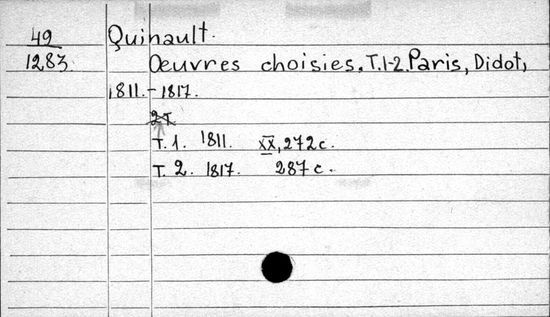 49
1283.
Quinault.
Oeuvres choisies. T.1-2. Paris, Didot,
1811.-1817.
2т.
T. 1. 1811. XX, 272 c.
T. 2. 1817. 287 c.